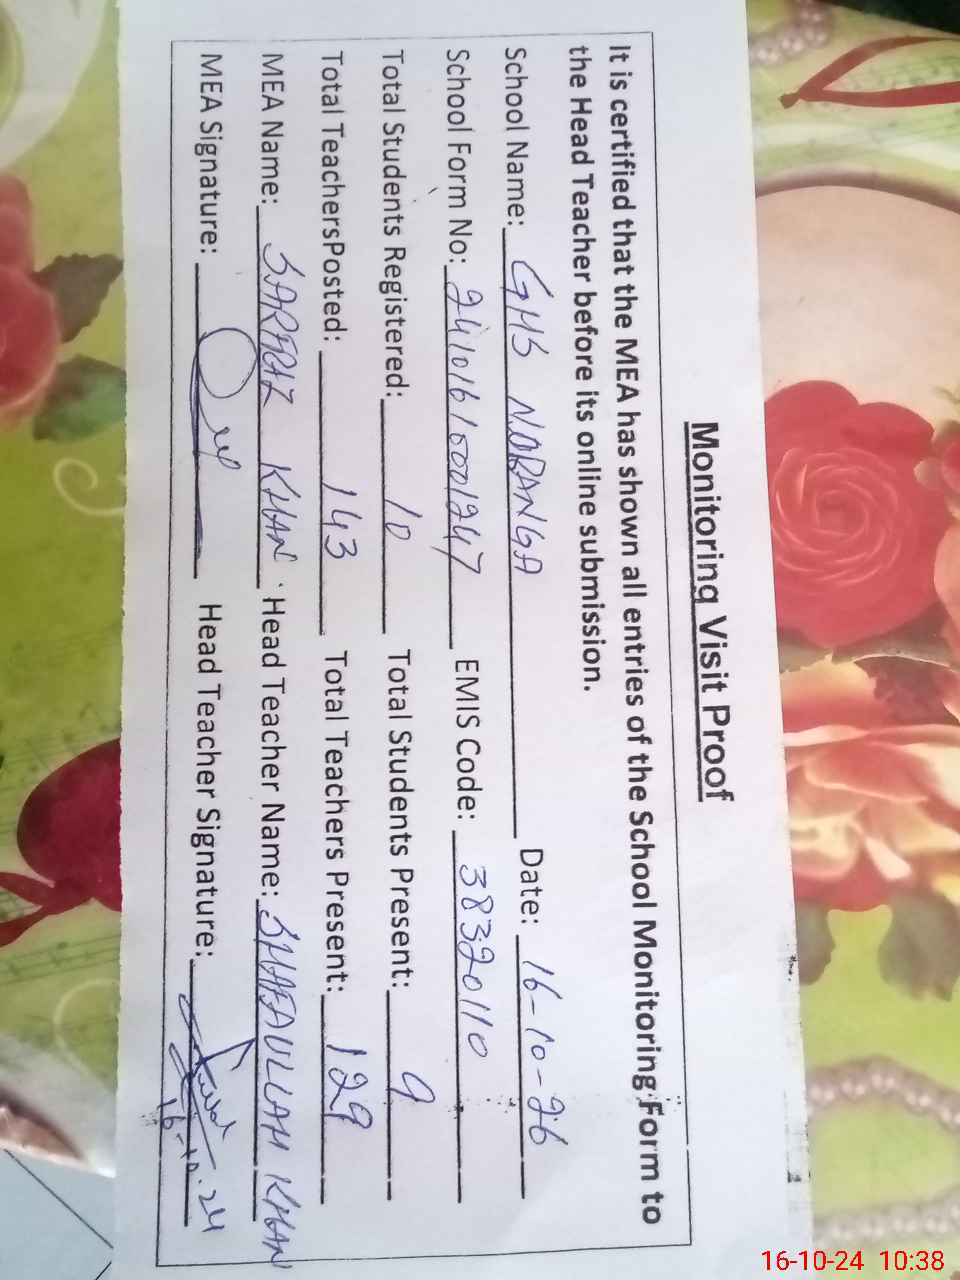 Monitoring Visit Proof
It is certified that the MEA has shown all entries of the School Monitoring Form to
the Head Teacher before its online submission.
School Name: GHS NORANGA Date: 16-10-26
School Form No: 24101610001247 EMIS Code: 38320110
Total Students Registered: 10 Total Students Present: 9
Total TeachersPosted: 143 Total Teachers Present: 129
MEA Name: SARFRAZ KHAN. Head Teacher Name: SHAFAULLAH KHAN
MEA Signature: Head Teacher Signature:
16-10-24
16-10-24 10:38